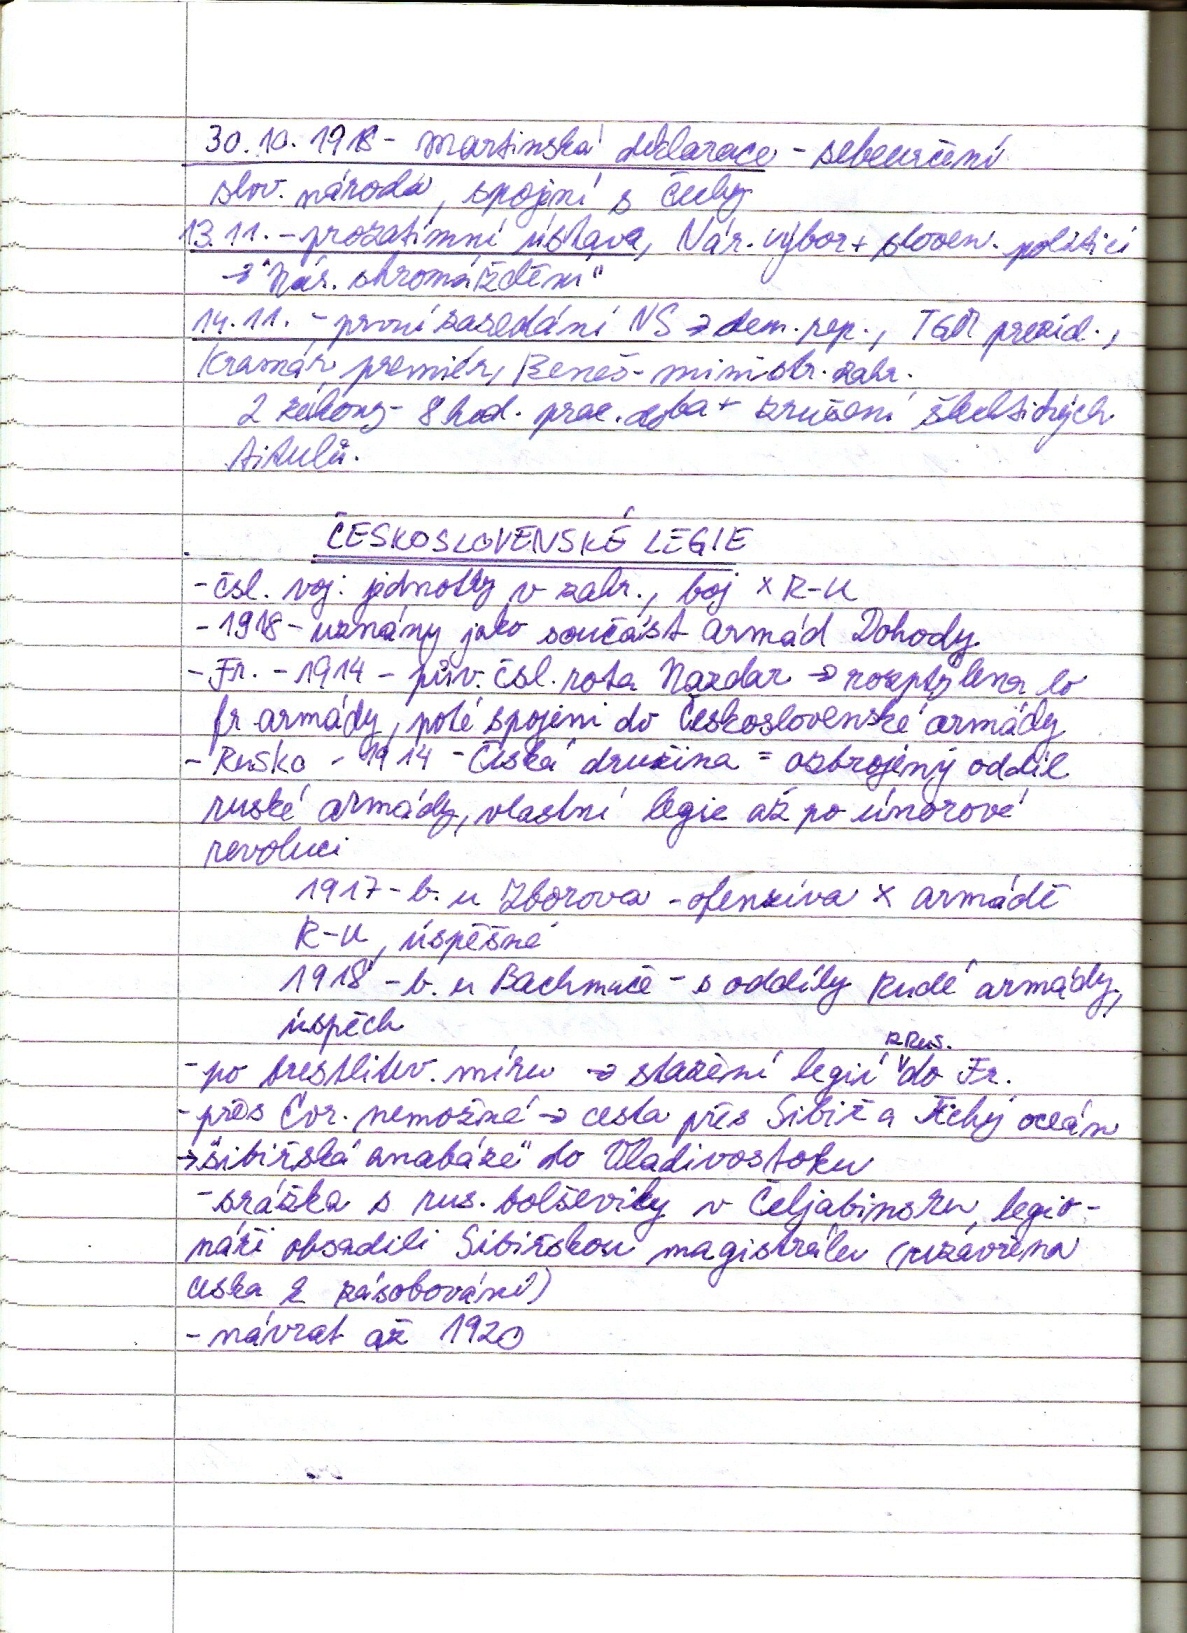 30.10. 1918 - Martinská deklarace - sebeurčení
slov. národa, spojení s Čechy
13.11. - prozatimní ústava, Nár. výbor + sloven. politici
→ "Nár. shromáždění"
14.11. - první zasedání NS → dem. rep., TGM prezid.,
Kramář premiér, Beneš - ministr. zahr.
2 zákony - 8 hod. prac. doba + zrušení šlechtických
titulů.
ČESKOSLOVENSKÉ LEGIE
- čsl. voj. jednotky v zahr., boj x R-U
- 1918 - uznány jako součást armád Dohody
- Fr. - 1914 - pův. čsl. rota Nazdar → rozptýlena do
fr armády, poté spojeni do Československé armády
- Rusko - 1914 - Česká družina = ozbrojený oddíl
ruské armády, vlastní legie až po únorové
revoluci
1917 - b. u Zborova - ofenziva x armádě
R-U, úspěšné
1918 - b. u Bachmače - s oddíly Rudé armády,
úspěch
- po brestlitev. míru → stažení legií z Rus. do Fr.
- přes Evr. nemožné → cesta přes Sibiř a Tichý oceán
→ "sibiřská anabáze" do Vladivostoku
- srážka s rus. bolševiky v Čeljabinsku, legio-
náři obsadili Sibiřskou magistrálu (uzavřena
cesta k zásobování)
- návrat až 1920